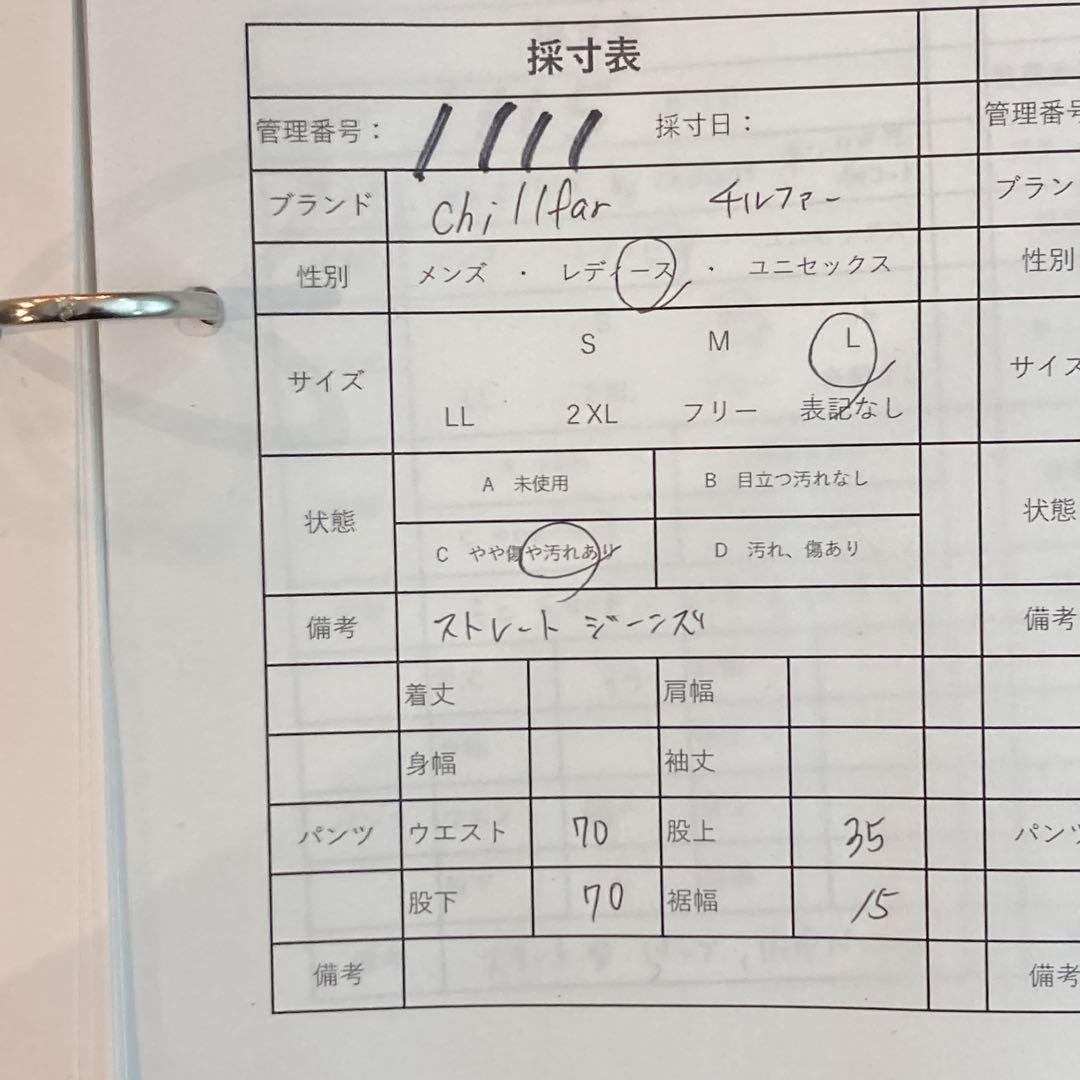 採寸表
管理番号： 1111 採寸日： 管理番号
ブランド chillfar チルファー ブラン
性別 メンズ ・ レディース ・ ユニセックス 性別
S M L
サイズ サイズ
LL 2XL フリー 表記なし
A 未使用 B 目立つ汚れなし
状態 状態
C やや傷や汚れあり D 汚れ、傷あり
備考 ストレート ジーンズ 備考
着丈 肩幅
身幅 袖丈
パンツ ウエスト 70 股上 35 パンツ
股下 70 裾幅 15
備考 備考